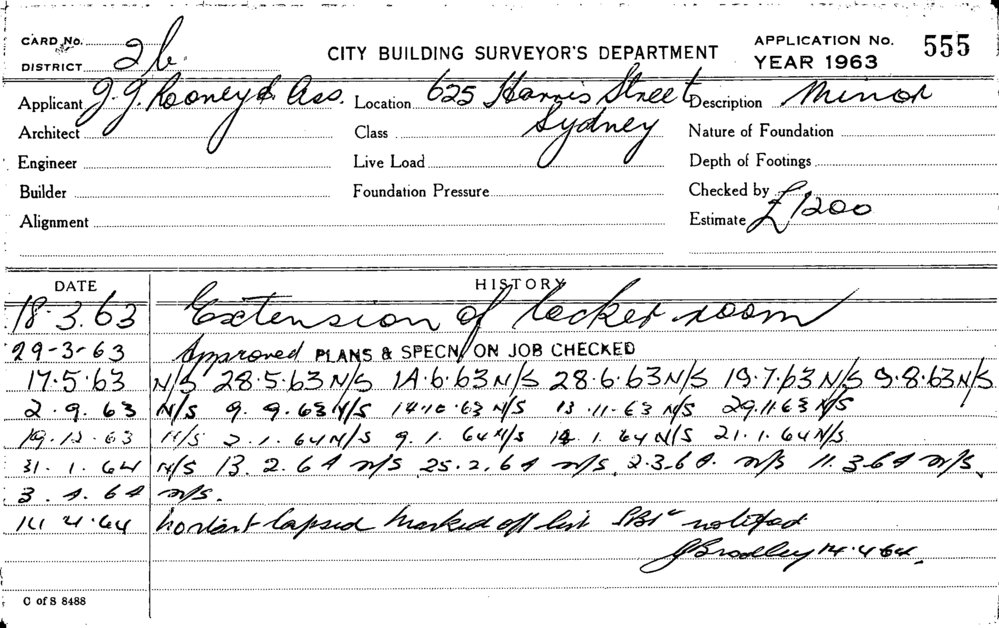 CARD No.
DISTRICT 2b.
CITY BUILDING SURVEYOR'S DEPARTMENT
APPLICATION No. 555
YEAR 1963
Applicant J. J. Rooney & Ass. Location 625 Harris Street Description Minor
Architect Class Sydney Nature of Foundation
Engineer Live Load Depth of Footings
Builder Foundation Pressure Checked by
Alignment Estimate £1200
DATE HISTORY
18.3.63 Extension of locker room
29-3-63 Approved PLANS & SPECN/ ON JOB CHECKED
17.5.63 N/S 28.5.63 N/S 14.6.63 N/S 28.6.63 N/S 19.7.63 N/S 9.8.63 N/S.
2.9.63 N/S 9.9.63 N/S 14.10.63 N/S 13.11.63 N/S 29.11.63 N/S
19.12.63 N/S 2.1.64 N/S 9.1.64 N/S 14.1.64 N/S 21.1.64 N/S
31.1.64 N/S 13.2.64 N/S 25.2.64 N/S. 2.3.64. N/S 11.3.64 N/S.
3.4.64 N/S.
14.4.64 lapsed marked off list notified
J Bradley 14.4.64.
C of S 8488